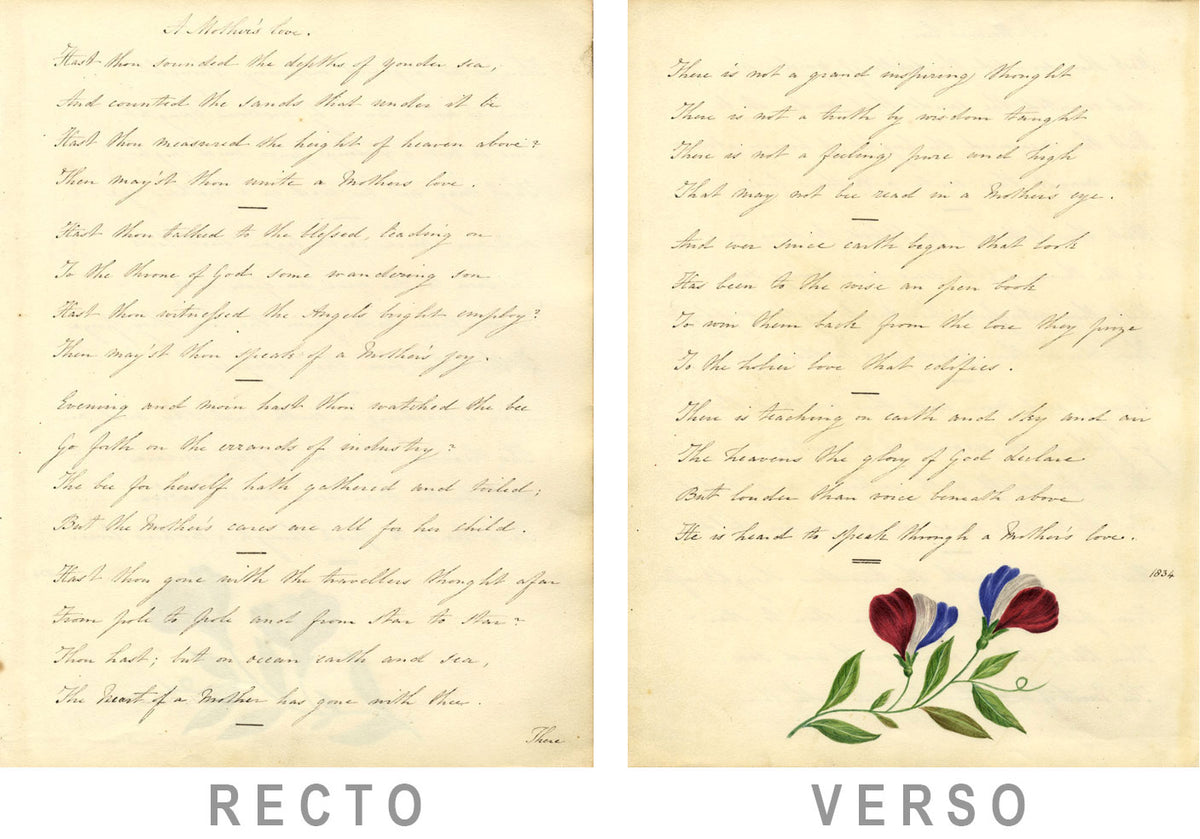 A Mother's love.
Hast thou sounded the depths of yonder sea,
And counted the sands that under it be
Hast thou measured the height of heaven above?
Then may'st thou write a Mothers love.
Hast thou talked to the blessed, leading on
To the throne of God some wandering son
Hast thou witnessed the Angels bright employ?
Then may'st thou speak of a Mother's joy.
Evening and morn hast thou watched the bee
Go forth on the errands of industry?
The bee for herself hath gathered and toiled;
But the Mother's cares are all for her child.
Hast thou gone with the travellers thought afar
From pole to pole and from star to star?
Thou hast; but on ocean earth and sea,
The Heart of a Mother has gone with thee.
There
RECTO
There is not a grand inspiring thought
There is not a truth by wisdom taught
There is not a feeling pure and high
That may not be read in a Mother's eye.
And ever since earth began that look
Has been to the wise an open book
To win them back from the lore they prize
To the holier love that edifies.
There is teaching on earth and sky and air
The heavens the glory of God declare
But louder than voice beneath above
He is heard to speak through a Mother's love.
1834
VERSO